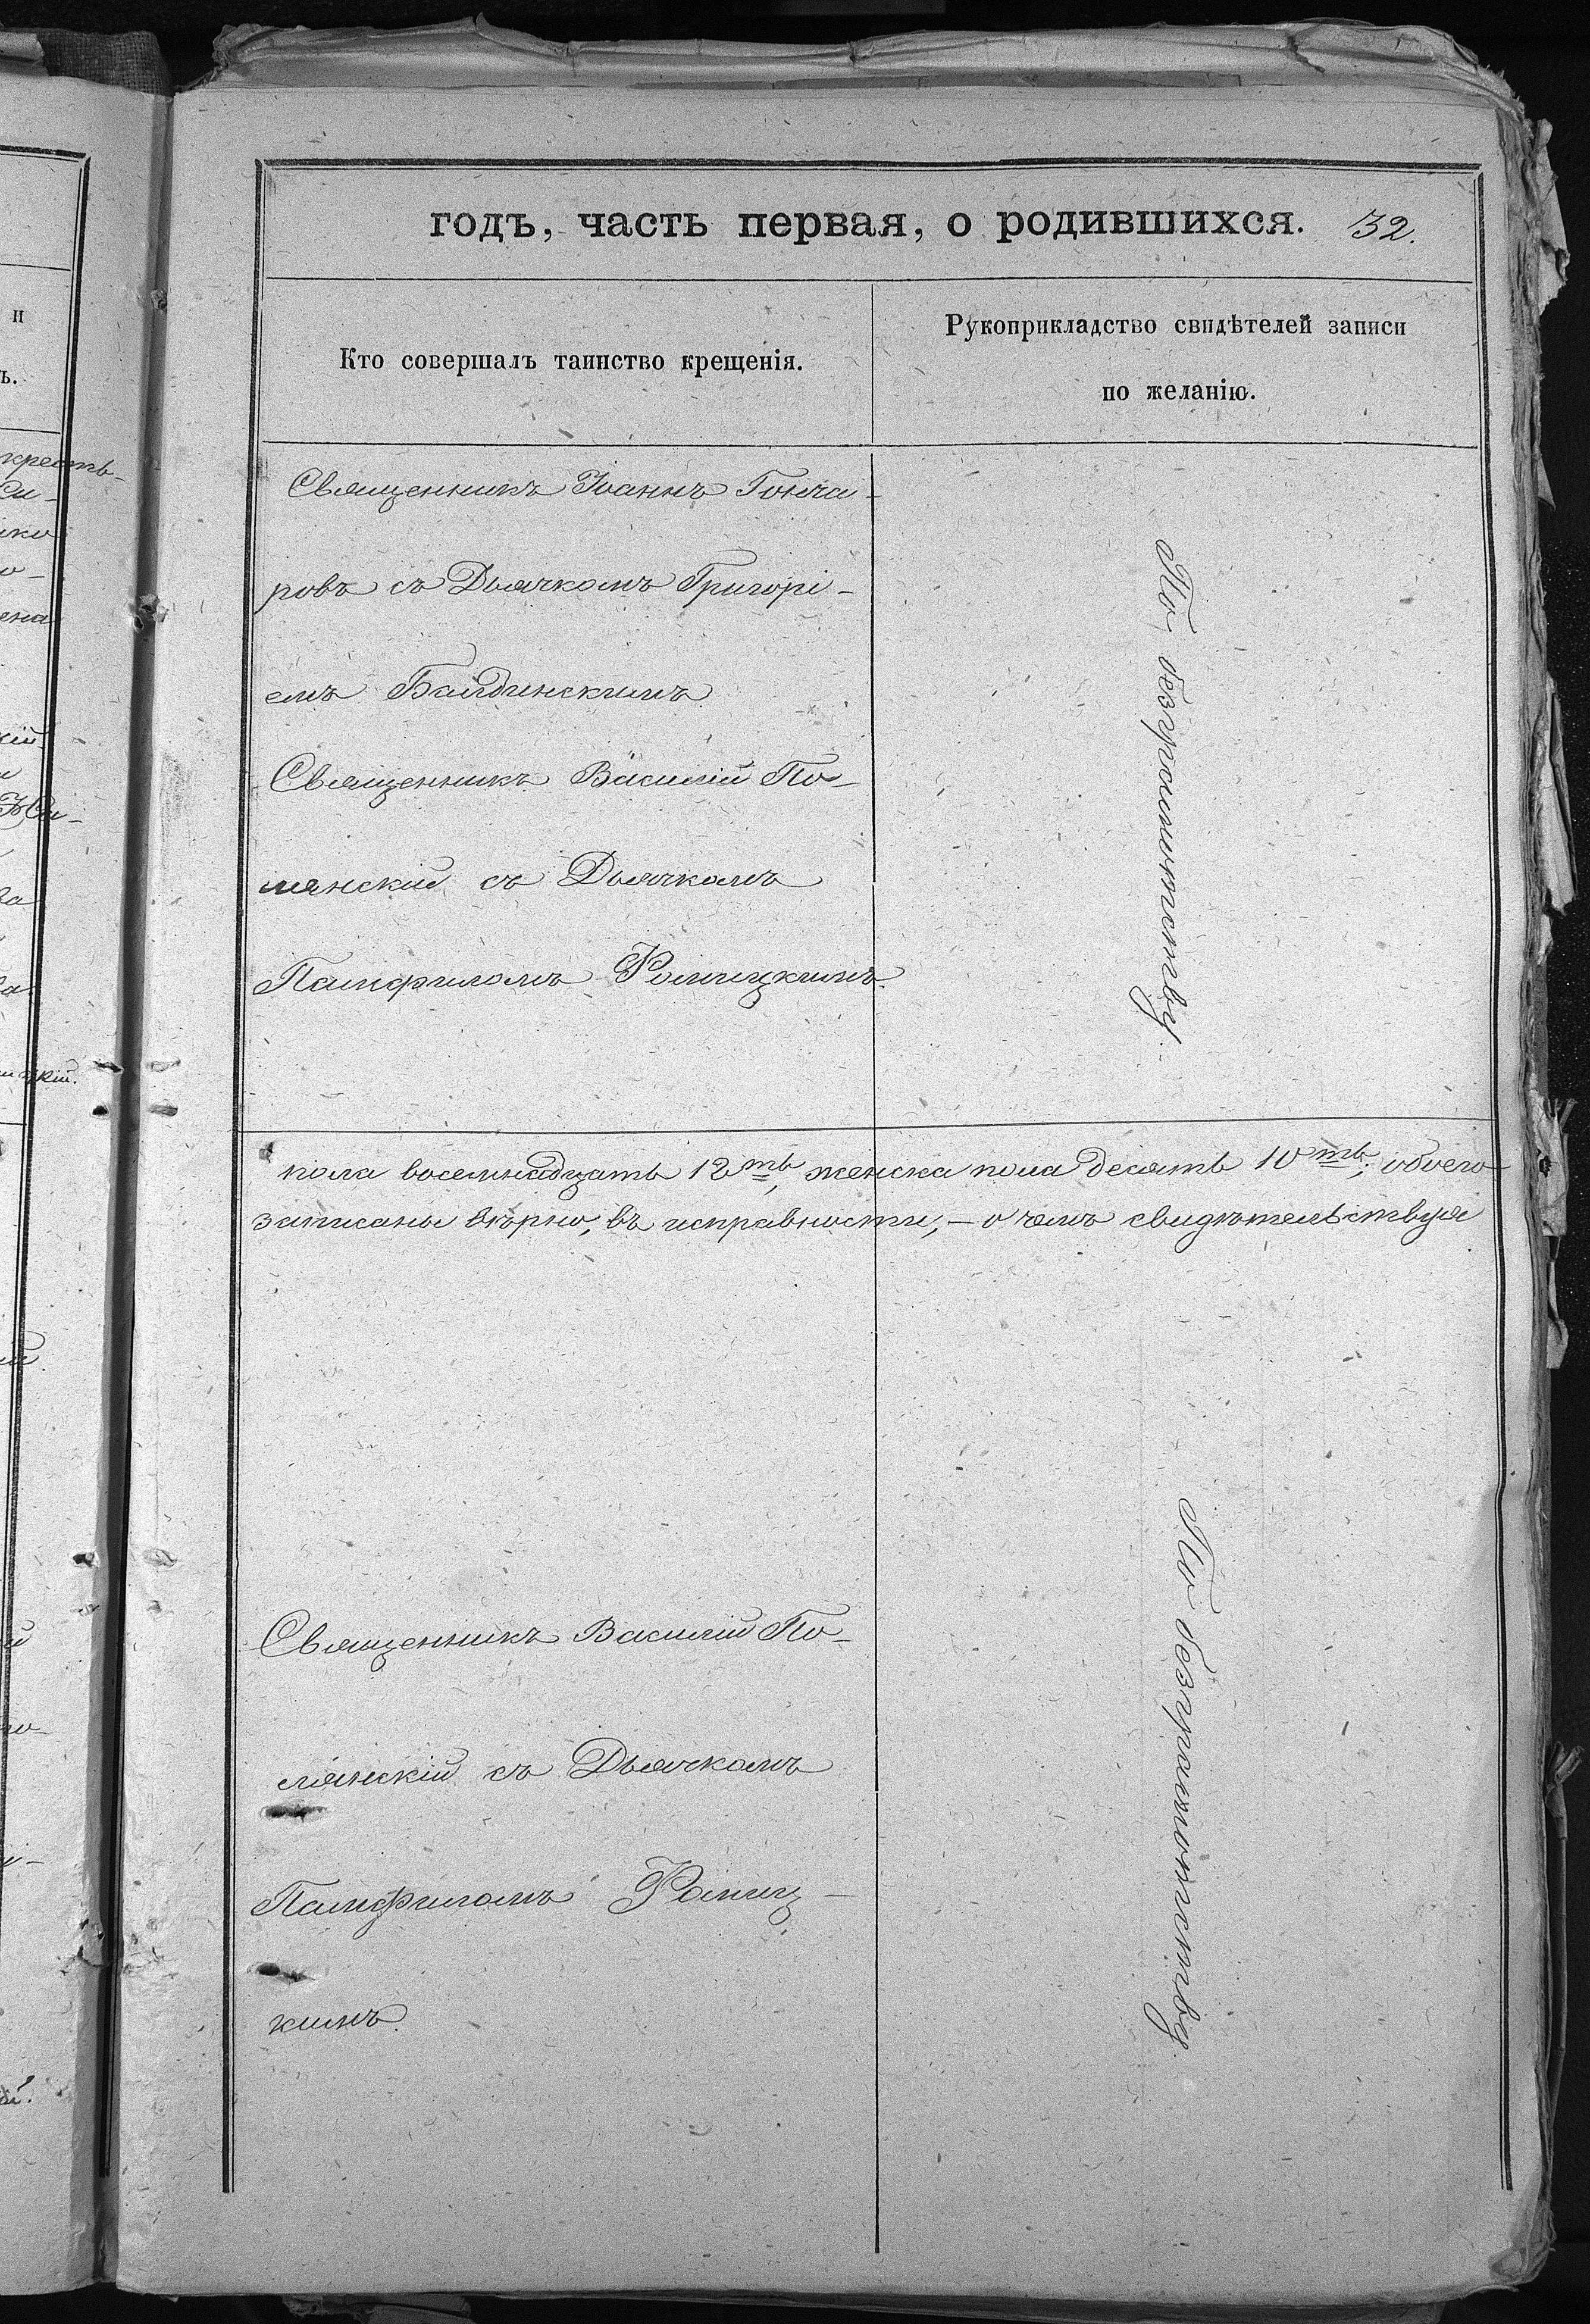 годъ, часть первая, о родившихся. 32.
Кто совершалъ таинство крещенія.
Рукоприкладство свидѣтелей записи
по желанію.
Священникъ Іоаннъ Гонча-
ровъ съ Дьячкомъ Григорі-
емъ Байдинскимъ.
Священникъ Василій По-
лянскій съ Дьячкомъ
Памфиломъ Ромицкимъ.
По безграмотству.
пола восемнадцать 18ть, женска пола десять 10ть; обоего
записаны вѣрно, въ исправности, – о чемъ свидѣтельствуя
Священникъ Василій По-
лянскій съ Дьячкомъ
Памфиломъ Ромиц-
кимъ.
По безграмотству.